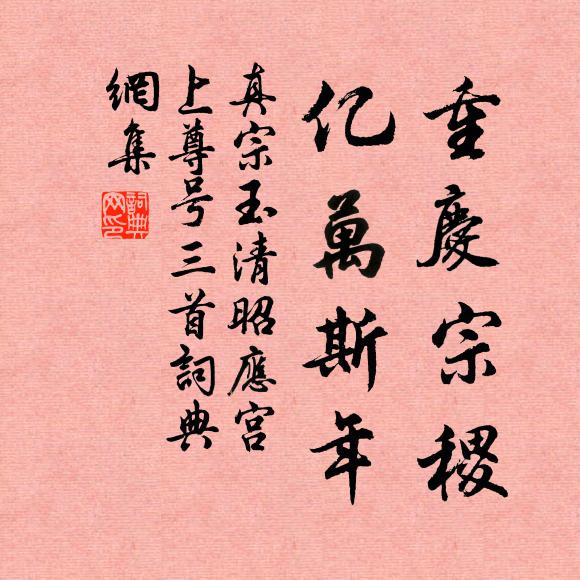 重慶宗稷
亿萬斯年
真宗玉清昭應宮
上尊号三首詞典
網集
詞典网印